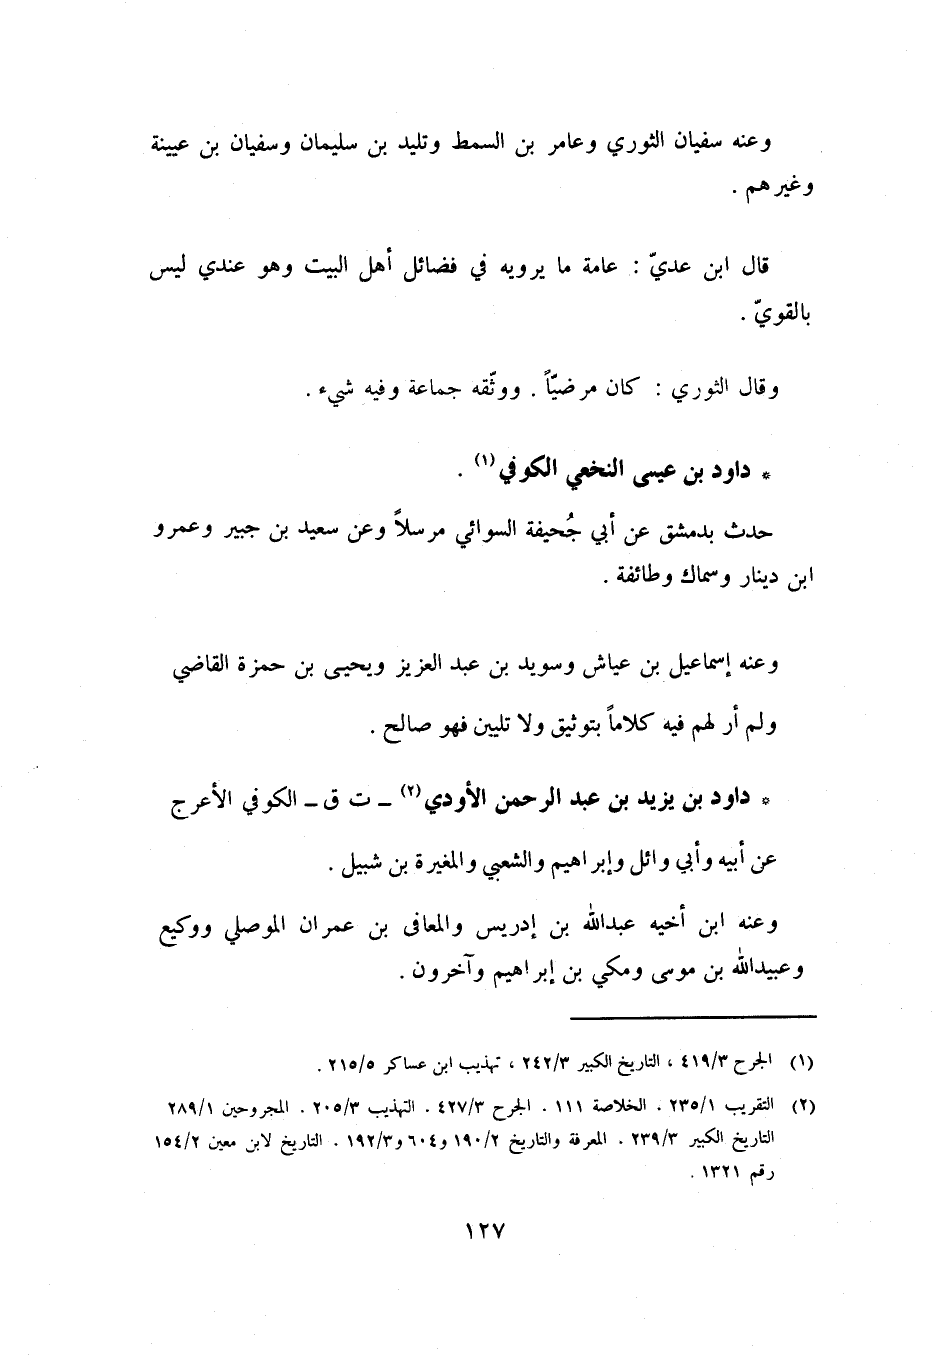 وعنه سفيان الثوري وعامر بن السمط وتليد بن سليمان وسفيان بن عيينة
وغيرهم .
قال ابن عديّ : عامة ما يرويه في فضائل أهل البيت وهو عندي ليس
بالقويّ .
وقال الثوري : كان مرضيّاً . ووثّقه جماعة وفيه شيء .
* داود بن عيسى النخعي الكوفي(١) .
حدث بدمشق عن أبي جُحيفة السوائي مرسلاً وعن سعيد بن جبير وعمرو
ابن دينار وسماك وطائفة .
وعنه إسماعيل بن عياش وسويد بن عبد العزيز ويحيى بن حمزة القاضي
ولم أر لهم فيه كلاماً بتوثيق ولا تليين فهو صالح .
* داود بن يزيد بن عبد الرحمن الأودي(٢) ـ ت ق ـ الكوفي الأعرج
عن أبيه وأبي وائل وإبراهيم والشعبي والمغيرة بن شبيل .
وعنه ابن أخيه عبدالله بن إدريس والمعافى بن عمران الموصلي ووكيع
وعبيدالله بن موسى ومكي بن إبراهيم وآخرون .
(١) الجرح ٤١٩/٣ ، التاريخ الكبير ٢٤٢/٣ ، تهذيب ابن عساكر ٢١٥/٥ .
(٢) التقريب ٢٣٥/١ . الخلاصة ١١١ . الجرح ٤٢٧/٣ . التهذيب ٢٠٥/٣ . المجروحين ٢٨٩/١
التاريخ الكبير ٢٣٩/٣ . المعرفة والتاريخ ١٩٠/٢ و٦٠٤ و١٩٢/٣ . التاريخ لابن معين ١٥٤/٢
رقم ١٣٢١ .
١٢٧